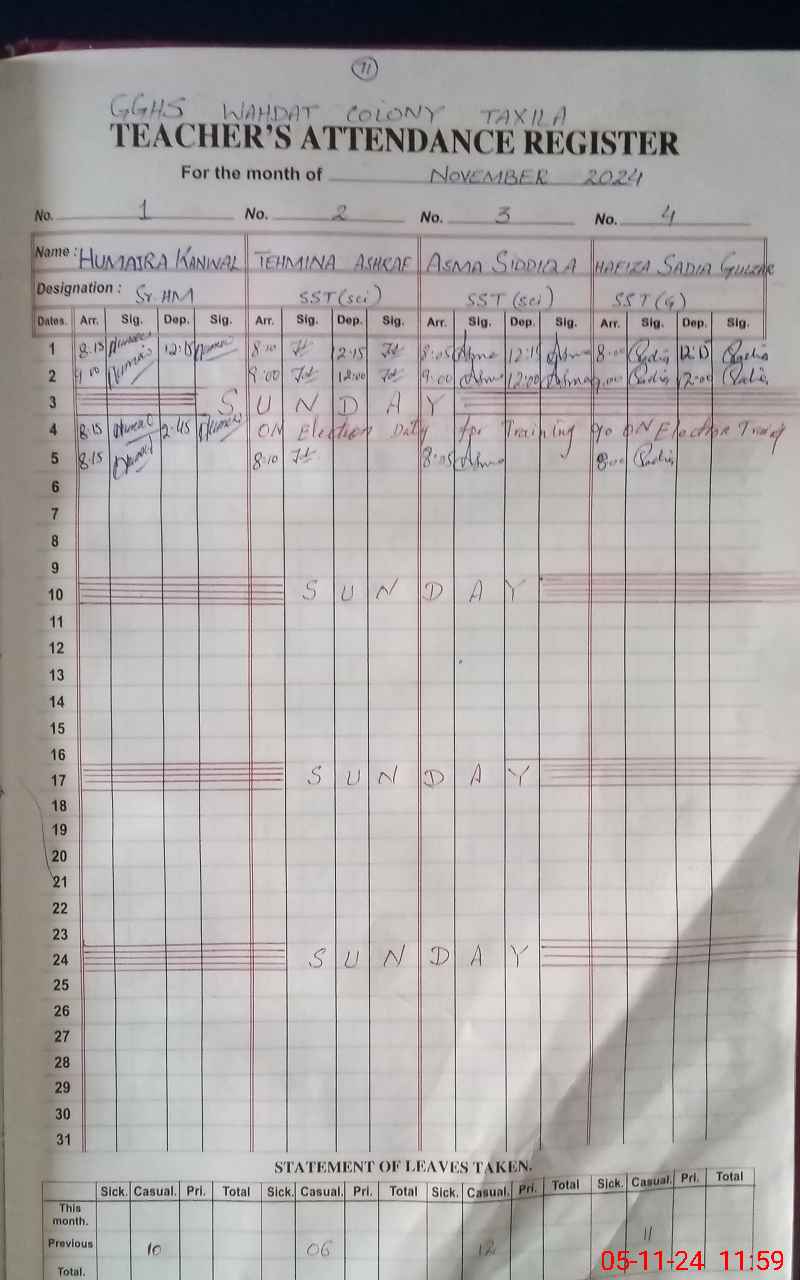 11
GGHS WAHDAT COLONY TAXILA
TEACHER'S ATTENDANCE REGISTER
For the month of NOVEMBER 2024
No. 1 No. 2 No. 3 No. 4
Name : HUMAIRA KANWAL TEHMINA ASHRAF ASMA SIDDIQA HAFIZA SADIA GULZAR
Designation : Sr. HM SST (sci) SST (sci) SST (G)
Dates. Arr. Sig. Dep. Sig. Arr. Sig. Dep. Sig. Arr. Sig. Dep. Sig. Arr. Sig. Dep. Sig.
1 8:15 12:15 8:10 12:15 8:05 Asma 12:15 Asma 8:00 Sadia 12:15 Sadia
2 9:00 9:00 12:00 9:00 Asma 12:00 Asma 9:00 Sadia 12:00 Sadia
3 SUNDAY
4 8:15 2:45 ON Election Duty for Training ON Election
5 8:15 8:10 8:05 Asma 8:00 Sadia
6
7
8
9
10 SUNDAY
11
12
13
14
15
16
17 SUNDAY
18
19
20
21
22
23
24 SUNDAY
25
26
27
28
29
30
31
STATEMENT OF LEAVES TAKEN.
Sick. Casual. Pri. Total Sick. Casual. Pri. Total Sick. Casual. Pri. Total Sick. Casual. Pri. Total
This month.
Previous 10 06 12 11
Total.
05-11-24 11:59